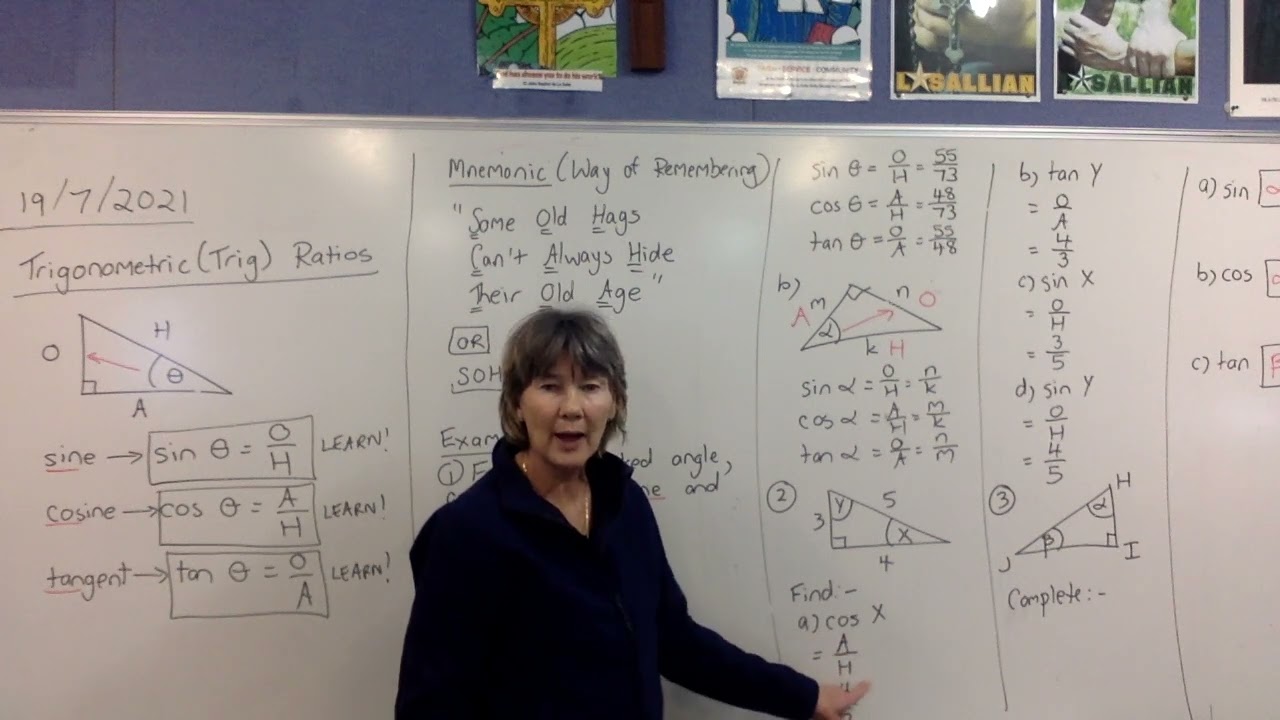 SERVICE COMMUNITY
LASALLIAN
LASALLIAN
19/7/2021
Trigonometric (Trig) Ratios
H
O
θ
A
sine → sin θ = O/H LEARN!
cosine → cos θ = A/H LEARN!
tangent → tan θ = O/A LEARN!
Mnemonic (Way of Remembering)
"Some Old Hags
Can't Always Hide
Their Old Age"
OR
SOH
①
angle,
and
sin θ = O/H = 55/73
cos θ = A/H = 48/73
tan θ = O/A = 55/48
b)
m
n
O
A
α
k
H
sin α = O/H = n/k
cos α = A/H = m/k
tan α = O/A = n/m
②
Y
5
3
X
4
Find:-
a) cos X
= A/H
b) tan Y
= O/A
= 4/3
c) sin X
= O/H
= 3/5
d) sin Y
= O/H
= 4/5
③
H
α
β
J
I
Complete:-
a) sin
b) cos
c) tan